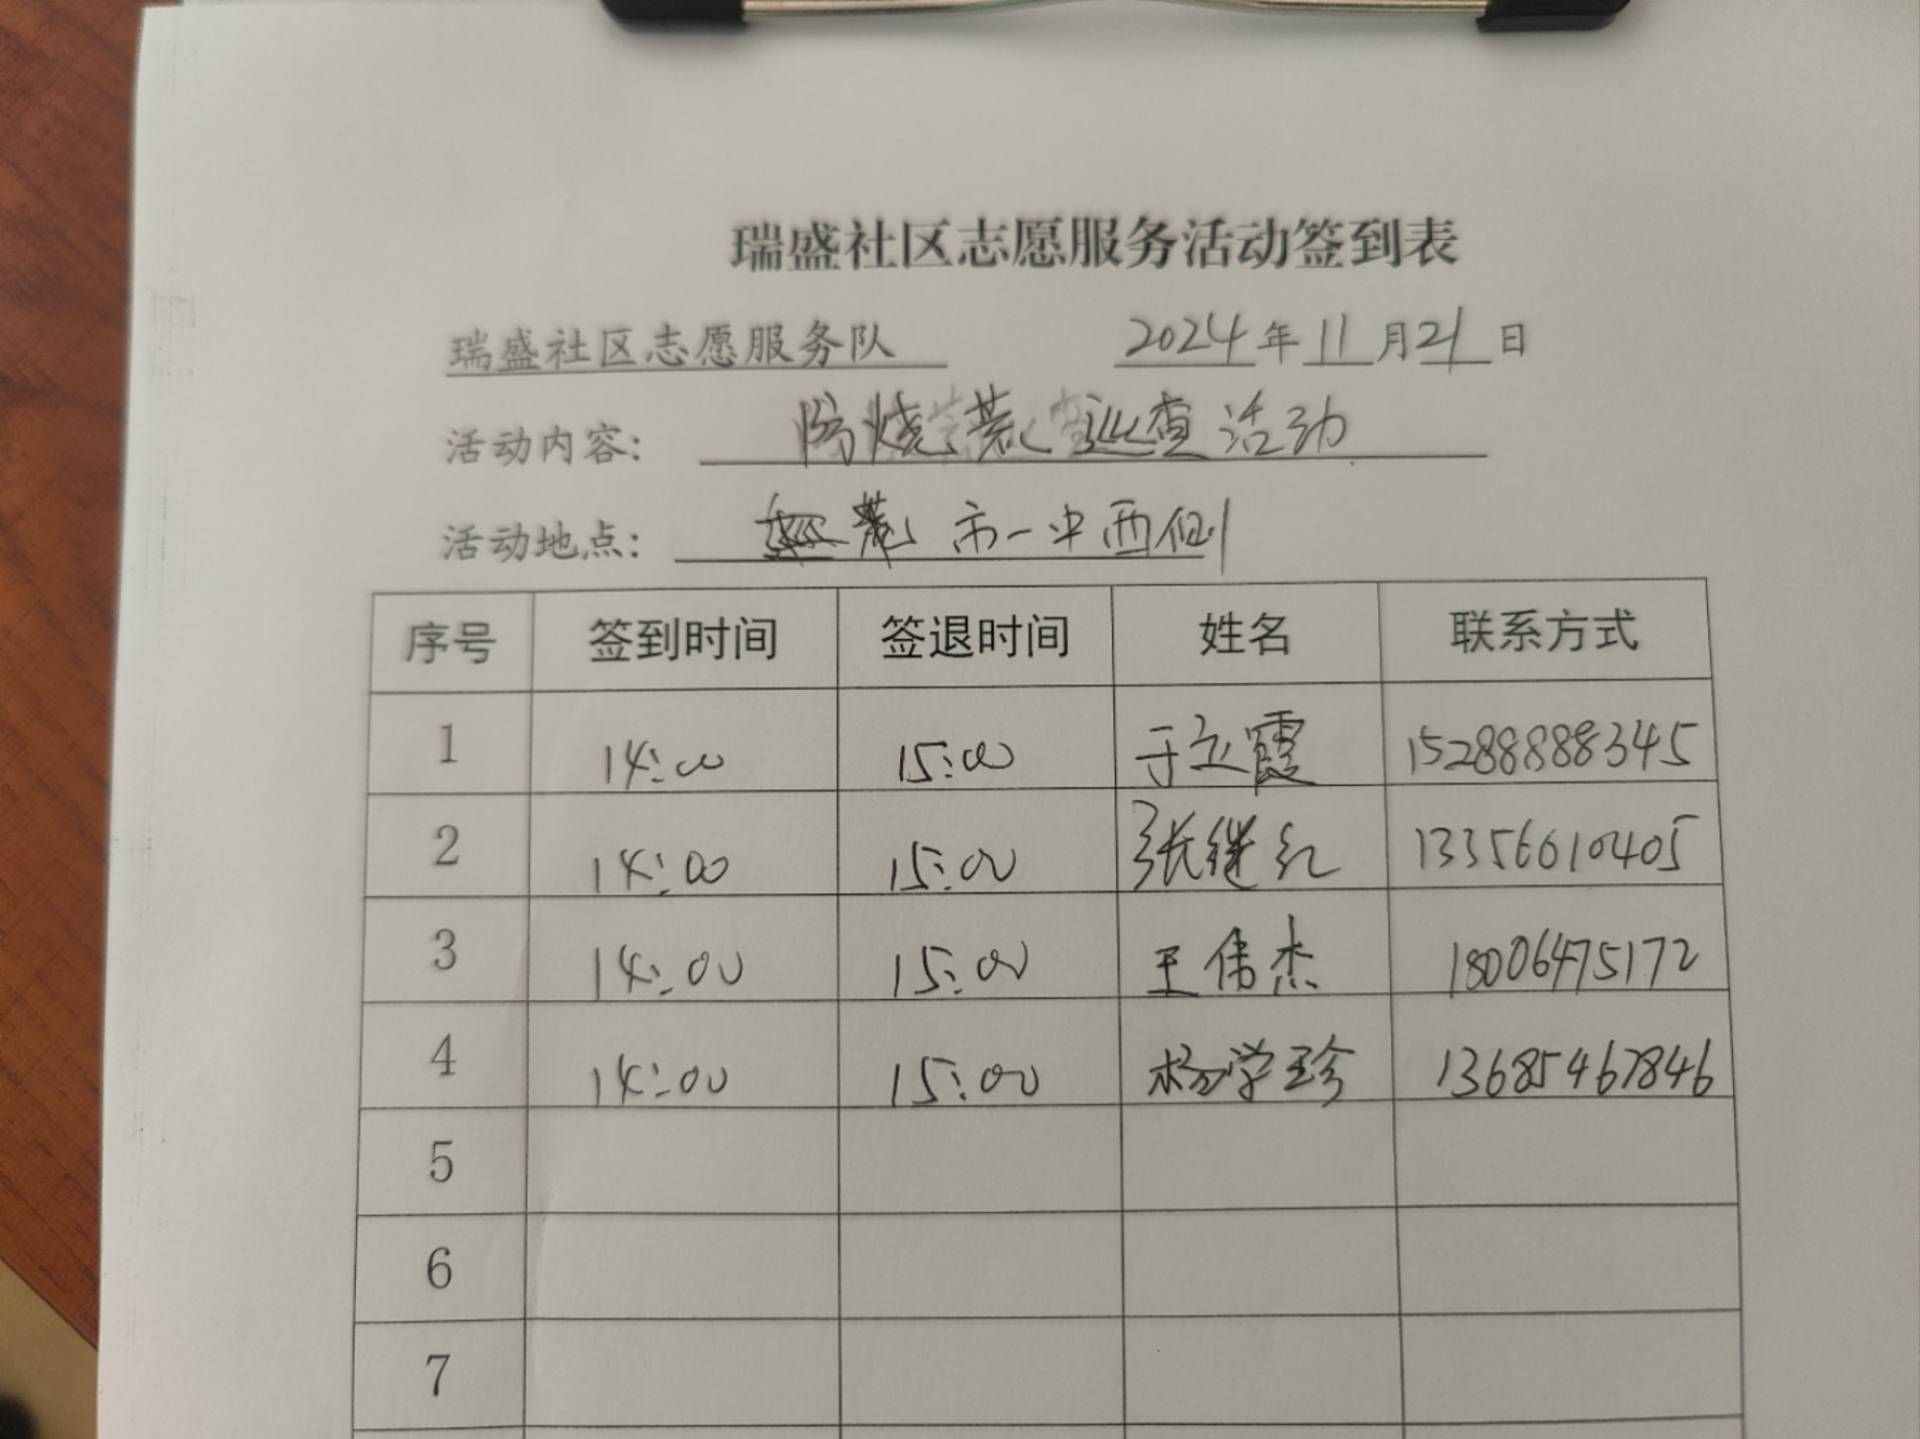 瑞盛社区志愿服务活动签到表
瑞盛社区志愿服务队 2024年11月21日
活动内容： 防烧荒巡查活动
活动地点： 市一中西侧
序号 签到时间 签退时间 姓名 联系方式
1 14:00 15:00 于立霞 15288888345
2 14:00 15:00 张继红 13356610405
3 14:00 15:00 王伟杰 18006475172
4 14:00 15:00 杨学珍 13685467846
5
6
7